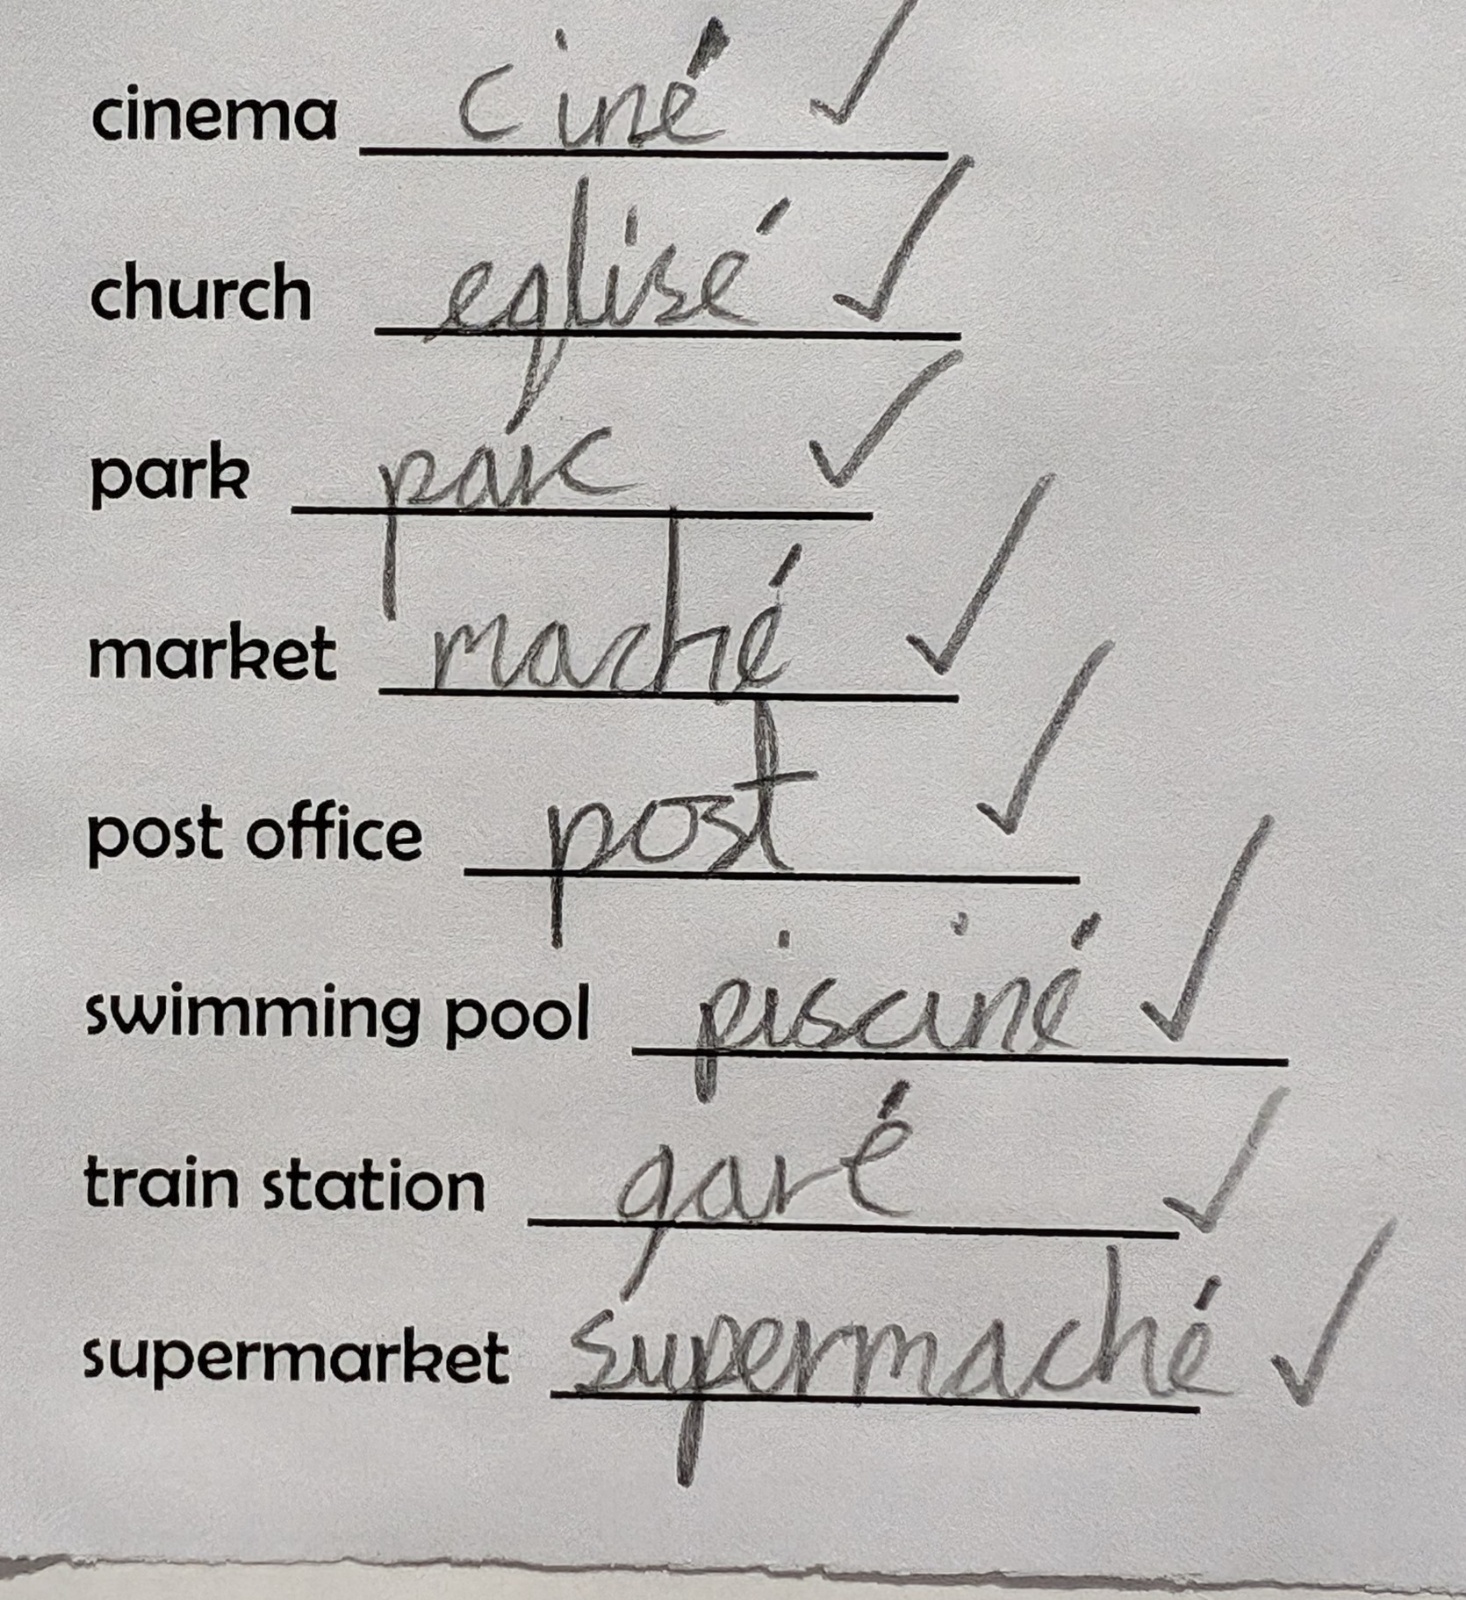 cinema ciné ✓
church eglisé ✓
park parc ✓
market maché ✓
post office post ✓
swimming pool pisciné ✓
train station garé ✓
supermarket supermaché ✓